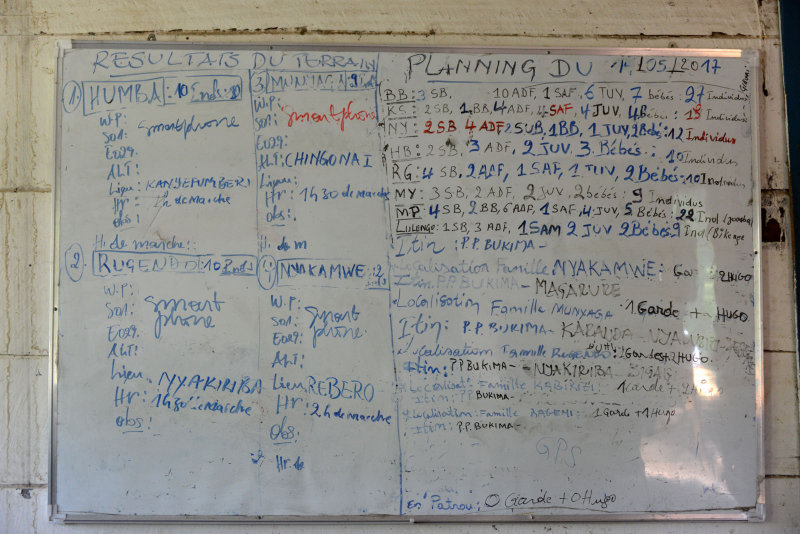 RESULTATS DU TERRAIN
1. HUMBA: 10 Inds
W.P:
S01: Smartphone
E029:
ALT:
Lieu: KANYEFUMBERI
Hr = 1h de Marche
obs:
H. de marche:
2. RUGENDO 10 Inds
W.P:
S01: Smart
phone
E029:
ALT:
Lieu: NYAKIRIBA
Hr: 1h30 de Marche
obs:
3. MUNYAGA 9 Inds
W.P:
S01: Smartphone
E029:
ALT: CHINGONA I
Ligne:
Hr: 1h30 de marche
obs:
H. de m
4) NYAKAMWE: 12 inds
W.P:
S01: Smart
phone
E029:
ALT:
Lieu REBERO
Hr: 2h de marche
Obs:
Hr. de
PLANNING DU /05/2017
BB: 3 SB, 10 ADF, 1 SAF, 6 JUV, 7 bébés: 27 Individus
KS: 2SB, 1BB, 4 ADF, SAF, 4 JUV, 4B Individus
NY: 2SB 4 ADF 2SUB, 1BB, 1 JUV, 2Bébés: 12 Individus
HB: 2SB, 3 ADF, 2 JUV, 3 Bébés: 10 Individus
RG: 4 SB, 2 ADF, 1 SAF, 1 JUV, 2 Bébés: 10 Individus
MY: 3SB, 2ADF, 2 JUV, 2 bébés: 9 Individus
MP: 4 SB, 2BB, 6ADF, 1 SAF, 4 JUV, 5 Bébés: 22 Ind
LULENGO: 1SB, 3 ADF, 1SAM 2 JUV 2Bébés 9 Ind/
Itin: P.P. BUKIMA-
Localisation Famille NYAKAMWE: 2HUGO
Itin P.P BUKIMA- MAGARURE
Localisation Famille MUNYAGA 1 Garde + HUGO
Itin: P.P. BUKIMA-
Localisation Famille RUGENDO: 1Gardes+2HUGO
Itin: P.P BUKIMA- NYAKIRIBA
Localisat° Famille KABIRIZI 1 Garde +
Itin: P.P. BUKIMA
Localisation Famille BAGENI: 1 Garde + 1 Hugo
Itin: P.P. BUKIMA-
GPS
en Patrou: 0 Garde + 0 Hugo